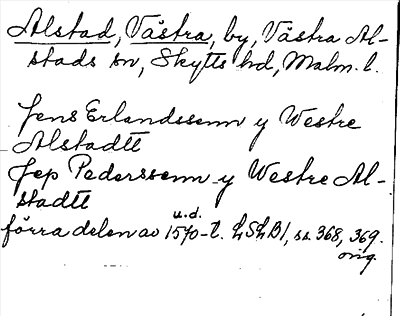 Alstad, Västra, by, Västra Al-
stads sn, Skytts hd, Malm. l.
Jens Erlandssenn y Westre
Alstadtt
Jep Pederssenn y Westre Al-
stadtt
u.d.
förra delen av 1570-t. LSLB1, ss. 368, 369.
orig.